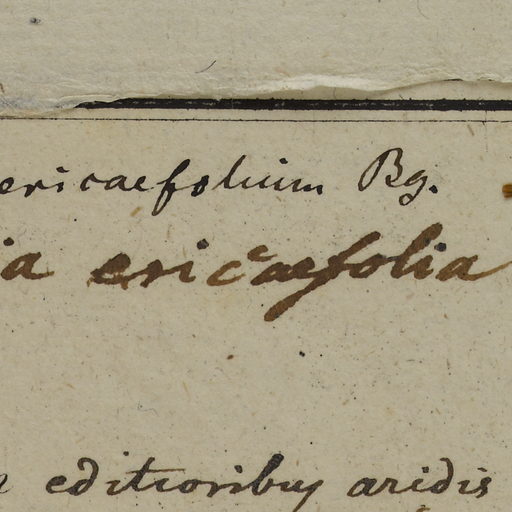 ericaefolium Bg.
ia ericaefolia
editioribus aridis